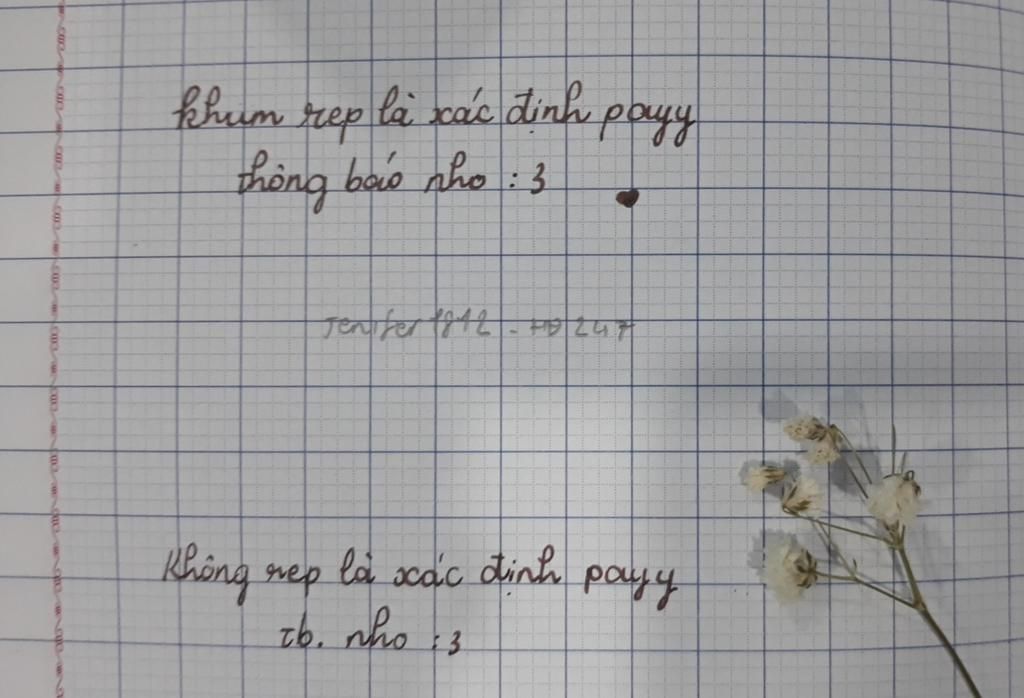 khum rep là xác định payy
thông báo nho : 3
Jenifer1812 - HD 247
Không rep là xác định payy
tb. nho : 3